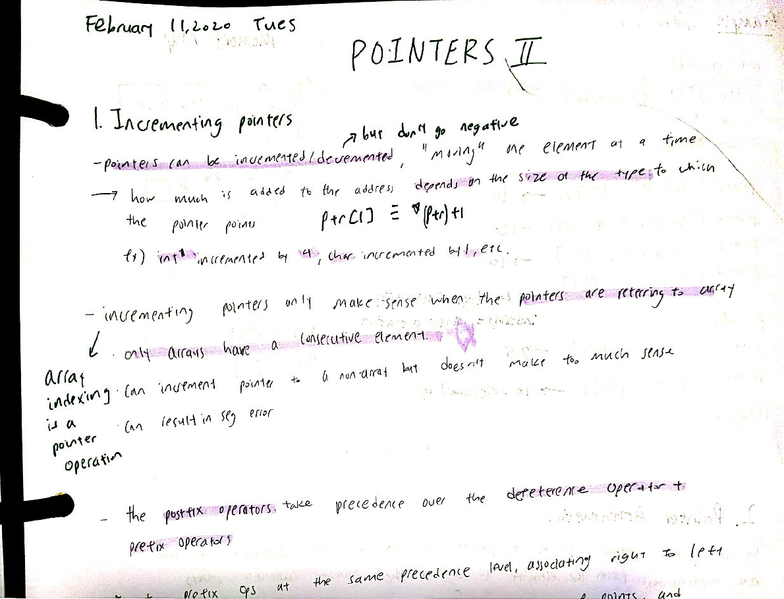 February 11, 2020 Tues
POINTERS II
1. Incrementing pointers
↗ but don't go negative
- pointers can be incremented/decremented, "moving" one element at a time
→ how much is added to the address depends on the size of the type to which
the pointer points ptr[1] ≡ *(ptr)+1
Ex) int incremented by 4, char incremented by 1, etc.
- incrementing pointers only make sense when the pointers are referring to array
· only arrays have a consecutive element.
· can increment pointer to a non-array but doesn't make too much sense
· can result in seg error
↙
array
indexing
is a
pointer
operation
- the postfix operators take precedence over the dereference operator +
prefix operators
prefix ops at the same precedence level, associating right to left
points, and